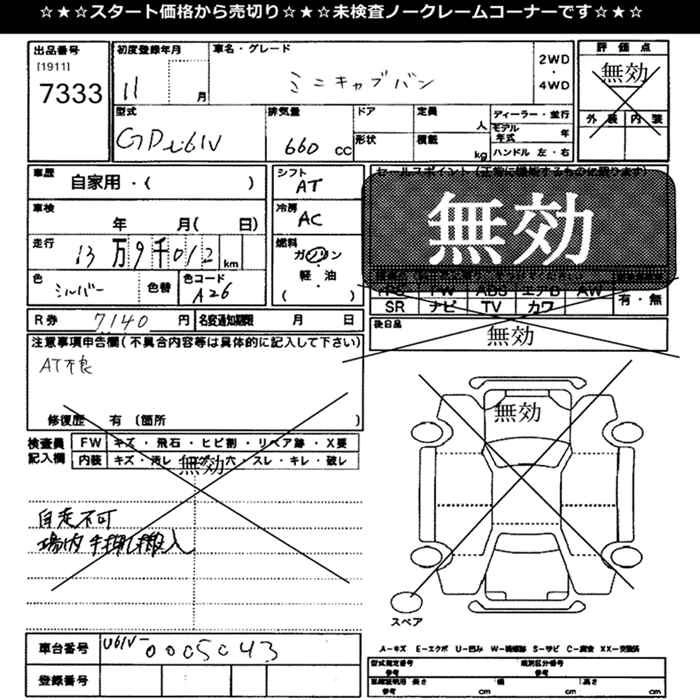 ☆★☆★スタート価格から売切り☆★☆★未検査ノークレームコーナーです☆★☆
出品番号
[1911]
7333
初度登録年月
11 月
車名・グレード
ミニキャブバン
2WD
・
4WD
評価点
無効
外装 内装
型式
GD-U61V
排気量
660 cc
ドア
形状
定員
人
積載
kg
ディーラー・並行
モデル年式 年
ハンドル 左・右
車歴
自家用・( )
車検
年 月( 日)
走行
13万9千012 km
色
シルバー
色替
色コード
A26
シフト
AT
冷房
AC
燃料
ガソリン
・
軽・油
( )
セールスポイント
無効
SR ナビ TV カワ
有・無
R券 7140 円
名変通知期限 月 日
後日品
無効
注意事項申告欄(不具合内容等は具体的に記入して下さい)
AT不良
修復歴 有 (箇所 )
検査員
記入欄
FW キズ・飛石・ヒビ割・リペア跡・X要
内装 キズ・汚レ・コゲ・穴・スレ・キレ・破レ
無効
自走不可
場内手押し搬入
無効
スペア
車台番号
U61V-0005043
登録番号
A―キズ E―エクボ U―凹み W―補修跡 S―サビ C―腐食 XX―交換済
型式指定番号
参考
類別区分番号
参考
長さ
参考 cm
幅
cm
高さ
cm